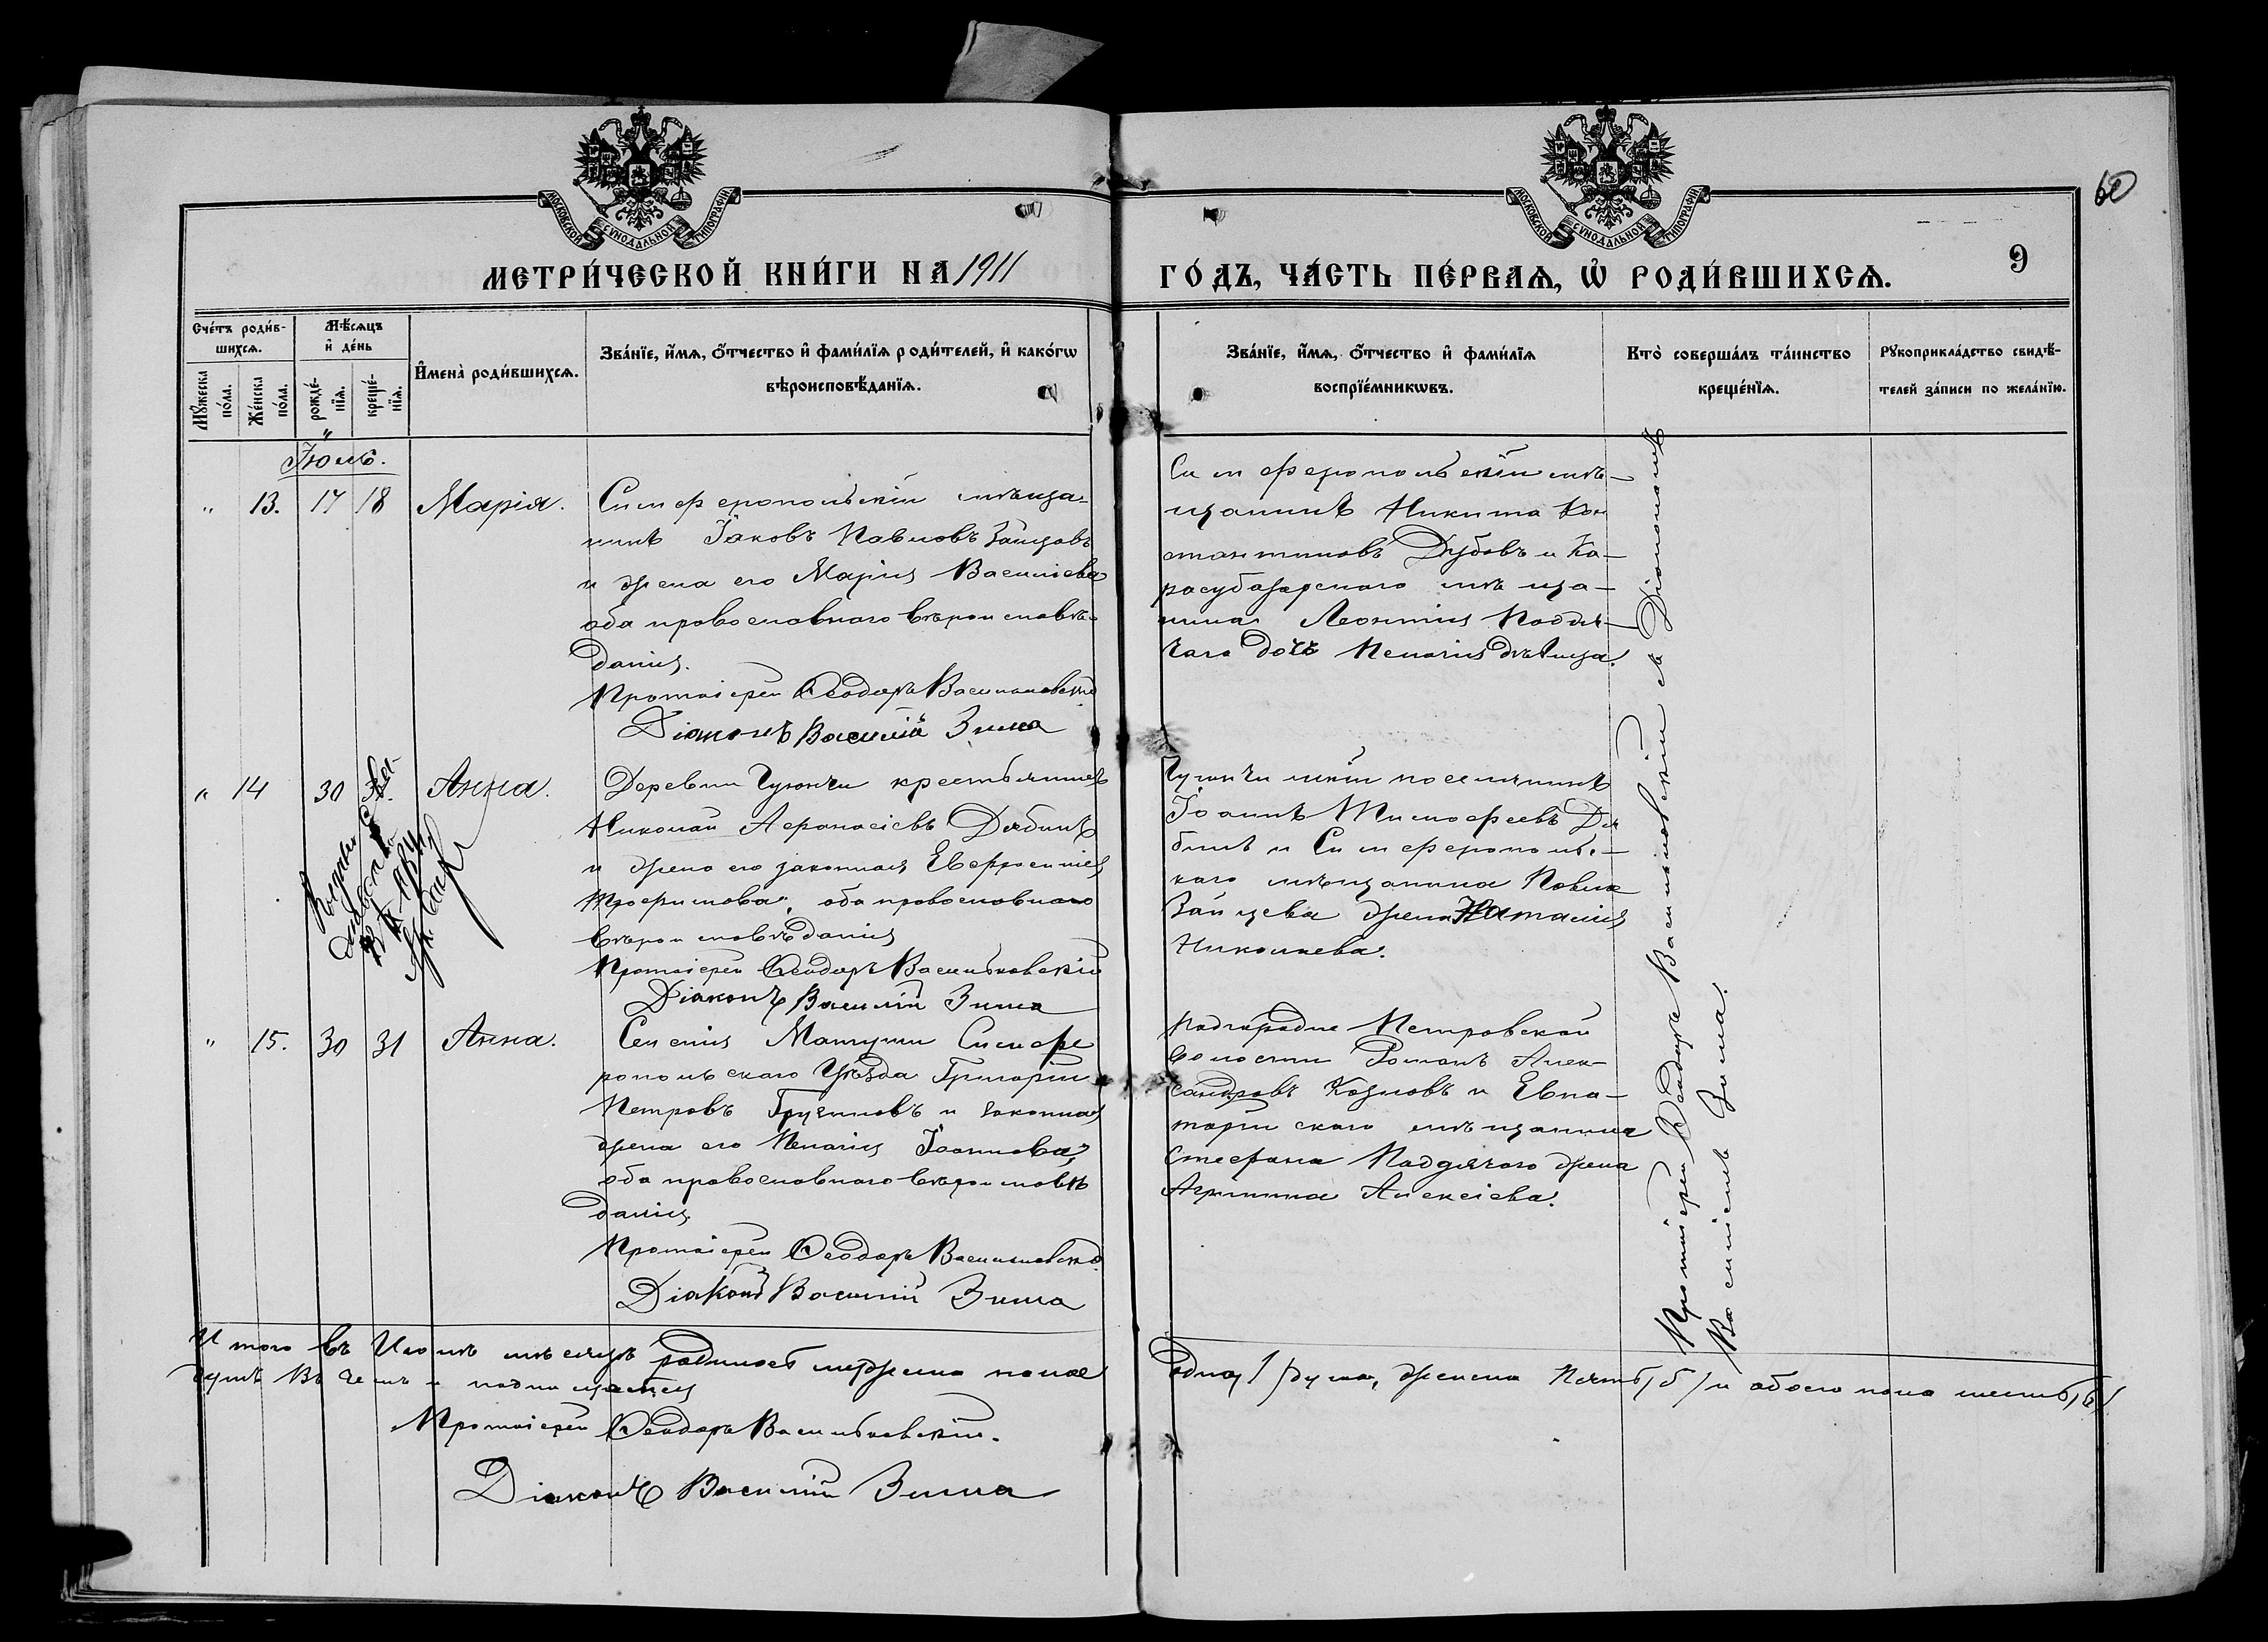 60
МОСКОВСКОЙ СѴНОДАЛЬНОЙ ТИПОГРАФІИ
МОСКОВСКОЙ СѴНОДАЛЬНОЙ ТИПОГРАФІИ
9
МЕТРИ́ЧЕСКОЙ КНИ́ГИ НА 1911 ГО́ДЪ, ЧА́СТЬ ПЕ́РВАѦ, Ѡ҆ РОДИ́ВШИХСѦ.
Сче́тъ роди́в-
шихсѧ.
Мꙋ́жеска по́ла.
Же́нска по́ла.
Мѣ́сѧцъ
и҆ де́нь
рожде́-
нїѧ.
креще́-
нїѧ.
И҆мена̀ роди́вшихсѧ.
Зва́нїе, и҆́мѧ, ѻ҆́тчество и҆ фами́лїѧ роди́телей, и҆ како́гѡ
вѣроисповѣ́данїѧ.
Зва́нїе, и҆́мѧ, ѻ҆́тчество и҆ фами́лїѧ
воспрїе́мникѡвъ.
Кто̀ соверша́лъ та́инство
креще́нїѧ.
Рꙋкоприкла́дство свидѣ́-
телей за́писи по жела́нїю.
Іюль.
" 13. 17 18 Марія.
Симферопольскій мѣща-
нинъ Іаковъ Павловъ Зайцовъ
и жена его Марія Василіева
оба православнаго вѣроисповѣ-
данія.
Протоіерей Ѳеодоръ Васильковскій
Діаконъ Василій Зима
Симферопольскій мѣ-
щанинъ Никита Кон
стантиновъ Дубовъ и Ка-
расубазарскаго мѣща-
нина Леонтія Поддя-
чаго дочь Пелагія дѣвица.
" 14 30 Анна.
Деревни Чуюнчи крестьянинъ
Николай Аѳанасіевъ Дябинъ
и жена его законная Евфросинія
Трофимова, оба православнаго
вѣроисповѣданія
Протоіерей Ѳеодоръ Васильковскій
Діаконъ Василій Зима
Чуюнчинскій поселянинъ
Іоаннъ Тимофеевъ Дя
бинъ и Симферополь-
скаго мѣщанина Павла
Зайцева жена Наталія
Николаева.
" 15. 30 31 Анна.
Селенія Мамути Симфе
ропольскаго Уѣзда Григорій
Петровъ и законная
жена его Пелагія Іоаннова,
оба православнаго вѣроисповѣ
данія
Протоіерей Ѳеодоръ Васильковскій
Діаконъ Василій Зима
Подгородне Петровской
волости Романъ Алек-
сандровъ Козловъ и Евпа-
торійскаго мѣщанина
Стефана Поддячаго жена
Агрипина Алексіева.
Протоіерей Ѳеодоръ Васильковскій съ Діакономъ
Василіемъ Зима.
Итого въ Іюлѣ мѣсяцѣ родилось мужеска пола одна /1/ душа, женска пять /5/ и обоего пола шесть /6/
душъ Въ чемъ и подписуемся
Протоіерей Ѳеодоръ Васильковскій.
Діаконъ Василій Зима